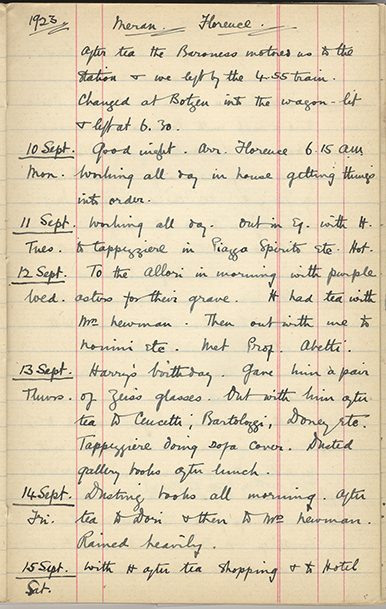 1923. Meran. Florence.
After tea the Baroness motored us to the
station & we left by the 4.55 train.
Changed at Botzen into the wagon-lit
& left at 6.30.
10 Sept. Good night. Arr. Florence 6.15 am
Mon. Working all day in house getting things
into order.
11 Sept. Working all day. Out in Eg. with H.
Tues. to tappezziere in Piazza Spirito Etc. Hot.
12 Sept. To the Allori in morning with purple
Wed. asters for their grave. H had tea with
Mrs Newman. Then out with me to
Nonini Etc. Met Prof. Abetti.
13 Sept. Harry's birthday. Gave him a pair
Thurs. of Zeiss glasses. Out with him after
tea to Ceucetti, Bartolozzi, Doney Etc.
Tappezziere doing sofa cover. Dusted
gallery books after lunch.
14 Sept. Dusting books all morning. After
Fri. tea to Dori & then to Mrs Newman.
Rained heavily.
15 Sept. With H after tea shopping & to Hotel
Sat.